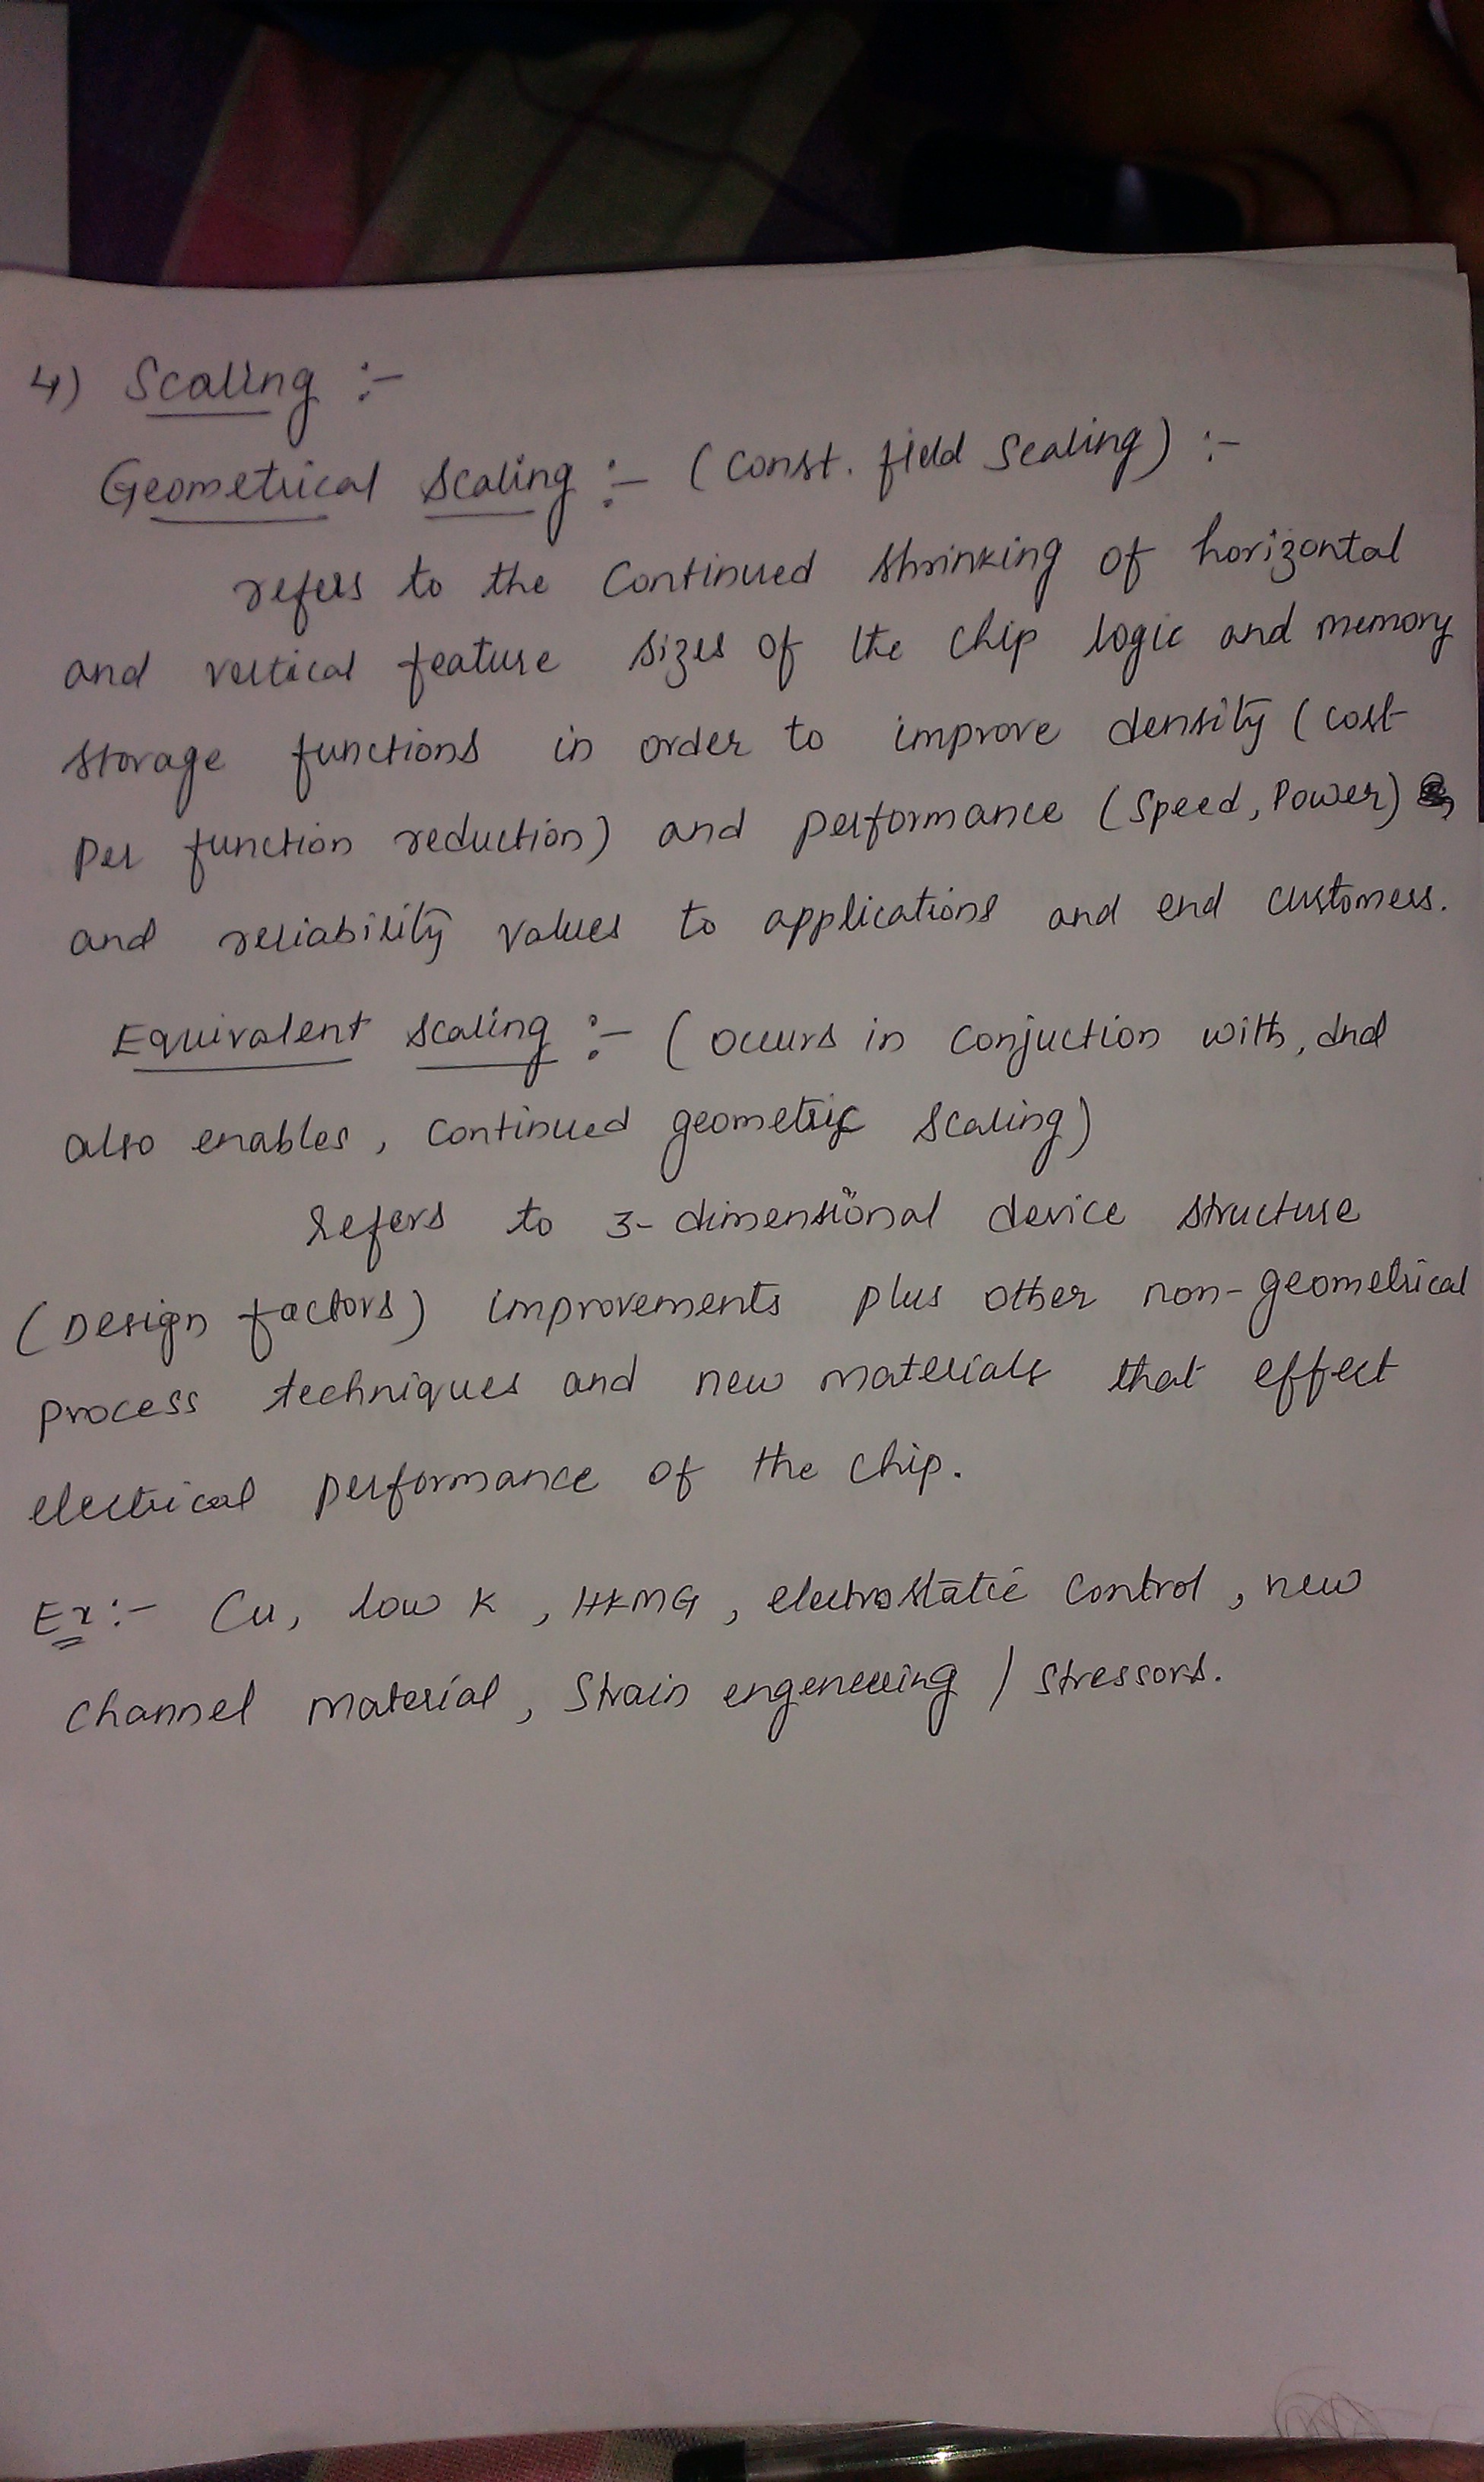 4) Scaling :-
Geometrical Scaling :- (Const. field Scaling) :-
refers to the Continued shrinking of horizontal
and vertical feature sizes of the chip logic and memory
storage functions in order to improve density (cost
per function reduction) and performance (Speed, Power)
and reliability values to applications and end customers.
Equivalent scaling :- (occurs in conjuction with, and
also enables, continued geometric Scaling)
Refers to 3-dimensional device structure
(Design factors) improvements plus other non-geometrical
process techniques and new materials that effect
electrical performance of the chip.
Ex:- Cu, low K, HKMG, electrostatic control, new
channel material, Strain engeneering / stressors.